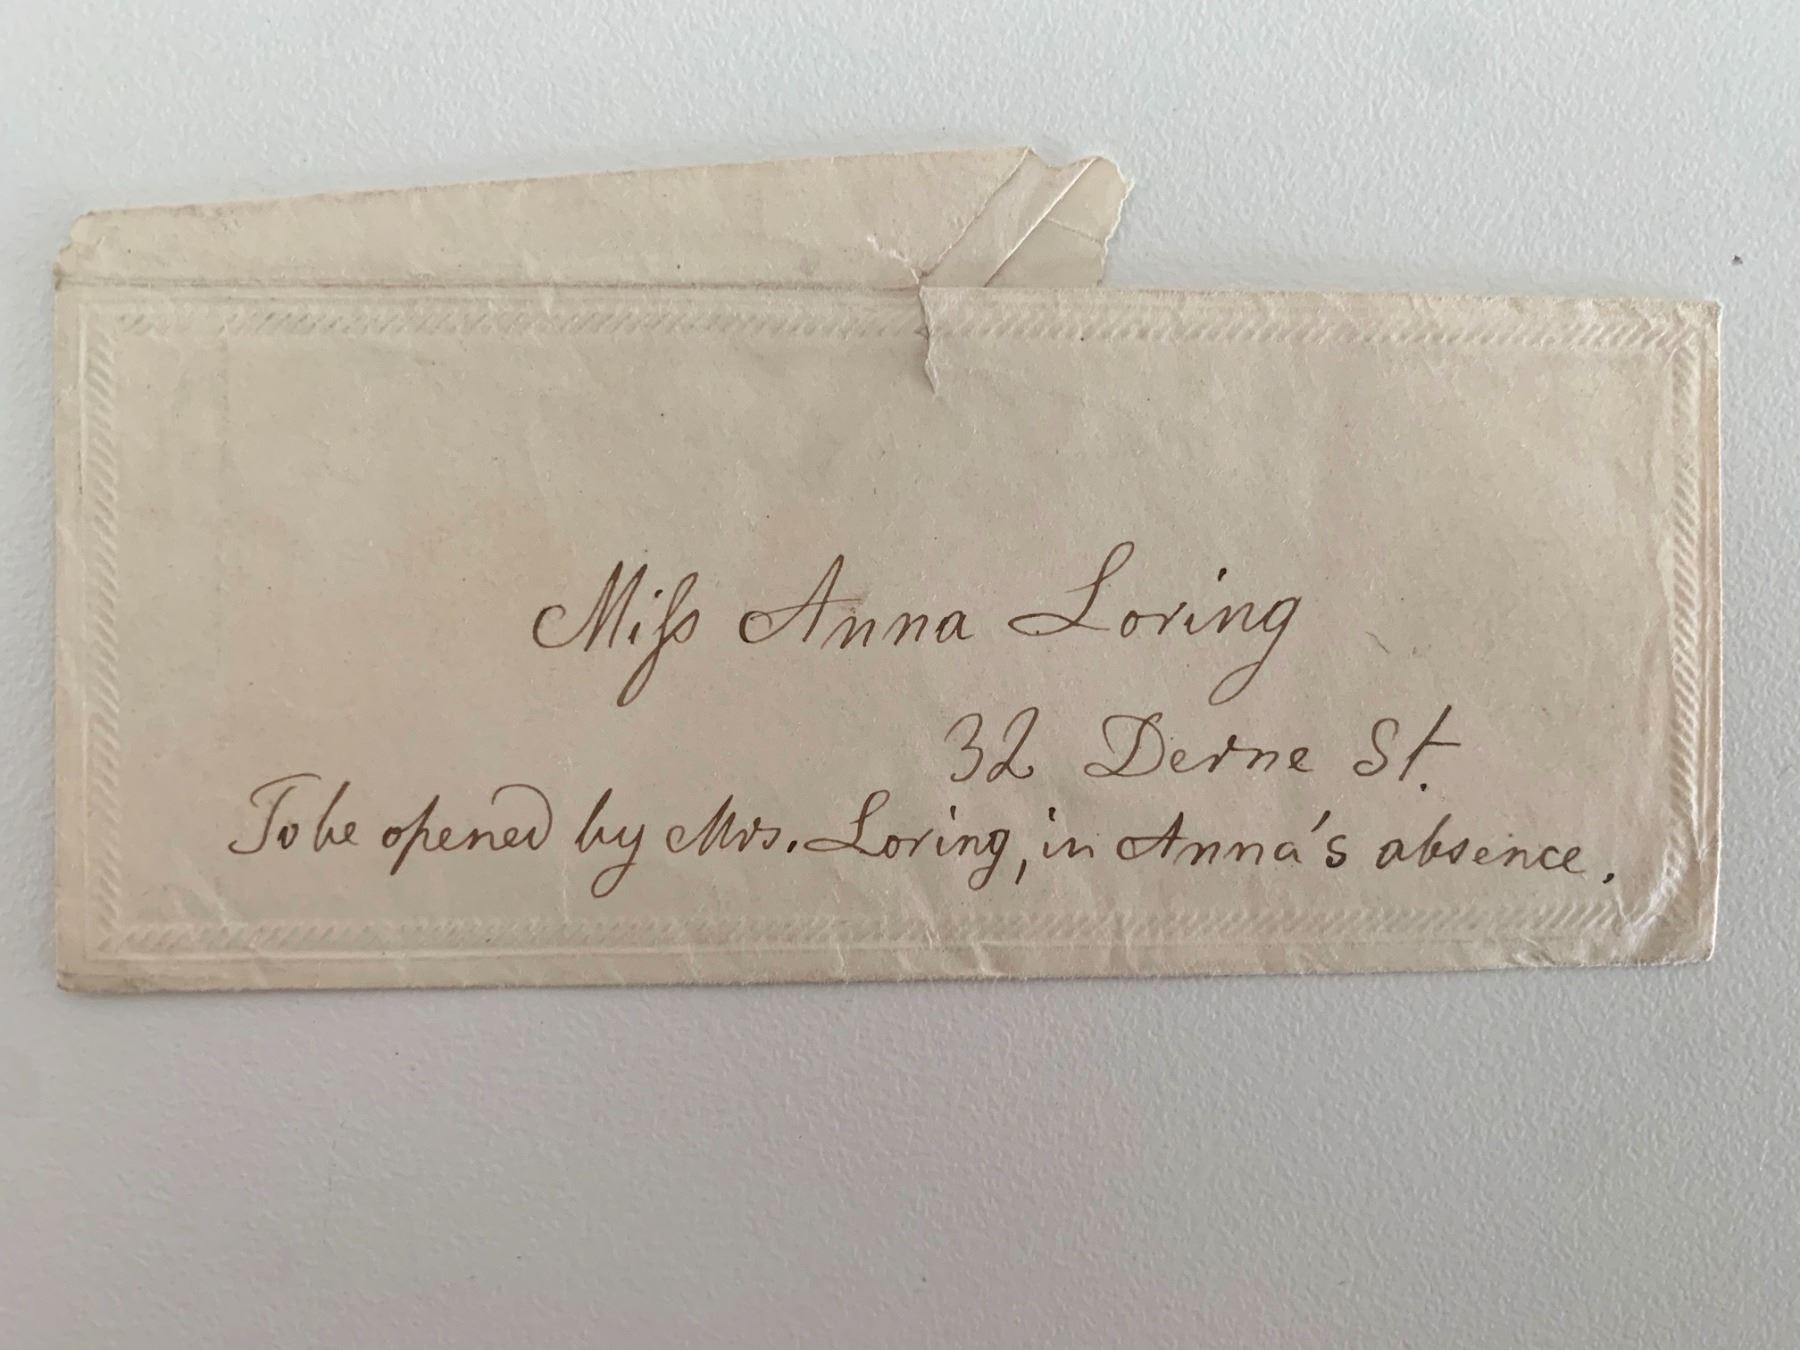 Miſs Anna Loring
32 Derne St.
To be opened by Mrs. Loring, in Anna's absence.